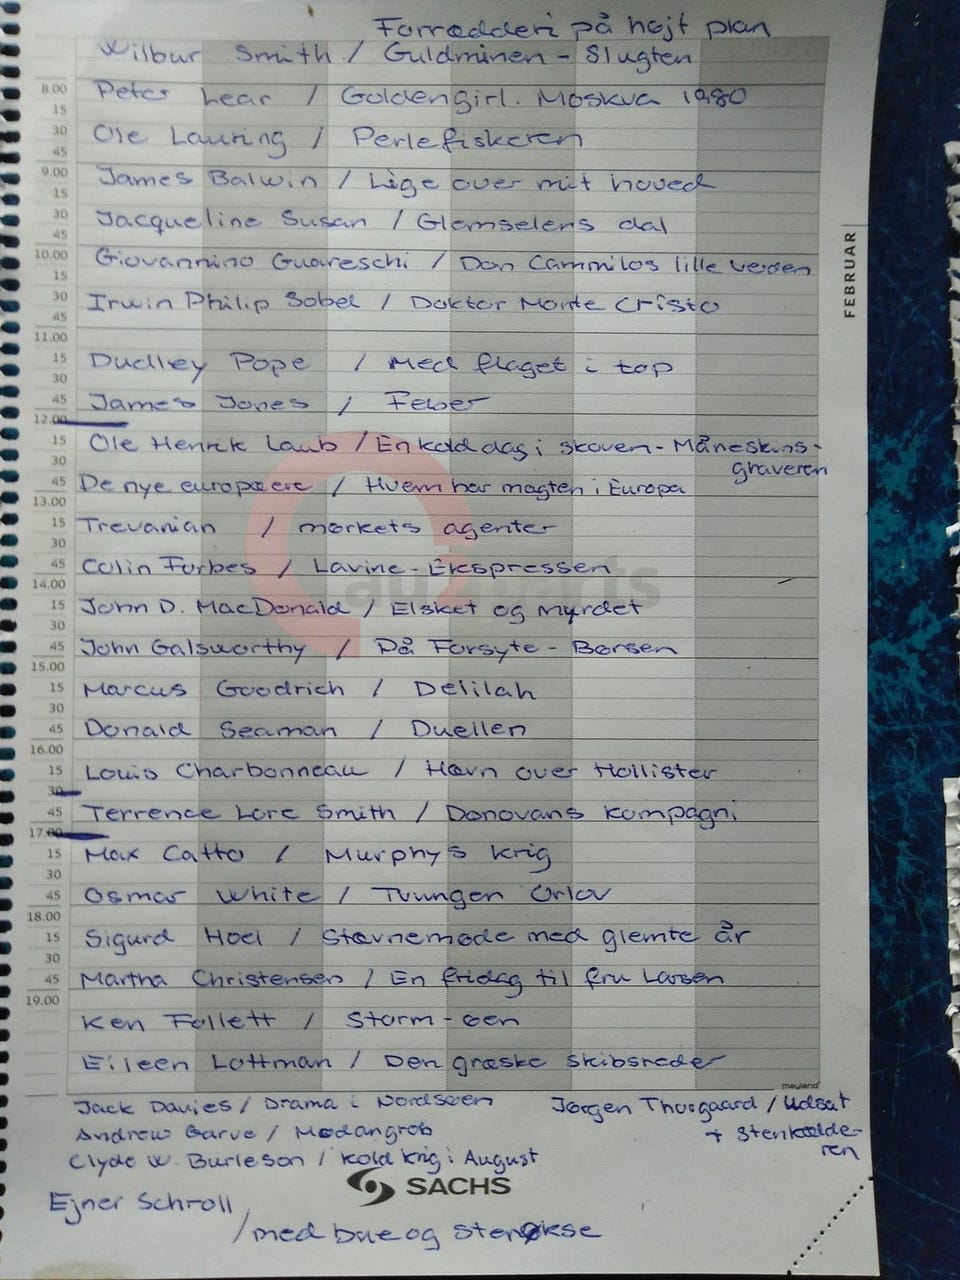 Forrædderi på højt plan
Wilbur Smith / Guldminen - Slugten
8.00 Peter Lear / Goldengirl. Moskva 1980
15
30 Ole Lauring / Perlefiskeren
45
9.00 James Balwin / Lige over mit hoved
15
30 Jacqueline Susan / Glemselens dal
45
10.00 Giovannino Guareschi / Don Cammilos lille verden
15
30 Irwin Philip Sobel / Doktor Monte Cristo
45
11.00
15 Dudley Pope / Med flaget i top
30
45 James Jones / Feber
12.00
15 Ole Henrik Laub / En kold dag i skoven - Måneskins-
30 graveren
45 De nye europæere / Hvem har magten i Europa
13.00
15 Trevanian / mørkets agenter
30
45 Colin Forbes / Lavine - Ekspressen
autoparts
14.00
15 John D. MacDonald / Elsket og myrdet
30
45 John Galsworthy / På Forsyte - Børsen
15.00
15 Marcus Goodrich / Delilah
30
45 Donald Seaman / Duellen
16.00
15 Louis Charbonneau / Hævn over Hollister
30
45 Terrence Lore Smith / Donovans kompagni
17.00
15 Max Catto / Murphys krig
30
45 Osmar White / Tvungen Orlov
18.00
15 Sigurd Hoel / Stævnemøde med glemte år
30
45 Martha Christensen / En fridag til fru Larsen
19.00
Ken Follett / Storm - øen
Eileen Lottman / Den græske skibsreder
mayland
FEBRUAR
Jack Davies / Drama i Nordsøen
Andrew Garve / Modangreb
Clyde W. Burleson / Kold krig i August
Jørgen Thorgaard / Udsat
+ Stenkælde-
ren
SACHS
Ejner Schroll
/ med bue og stenøkse